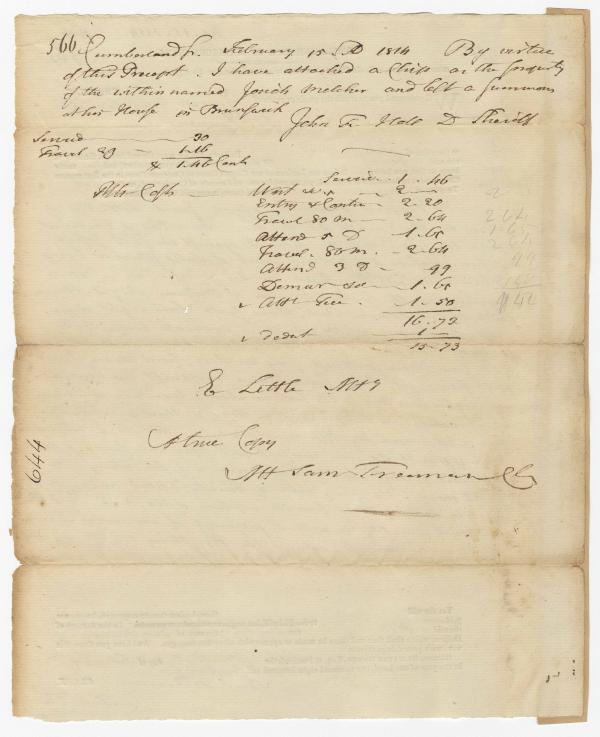 566 Cumberland ss. February 15 AD 1814 By virtue
of this Precept. I have attached a Chip as the property
of the within named Josiah Melcher and left a summons
at his House in Brunswick
John Hall D Sheriff
Service 30
Travel 29 1.16
$ 1.46 Cents
Service 1.46
Costs Writ 2
Entry & Contin 2.20
Travel 80 m 2.64
Attend 5 D 1.65
Travel 80 m. 2.64
Attend 3 D 99
Demur 1.65
Att Fee. 1.50
16.73
deduct 1
15.73
E Little Atty
A true Copy
Att Sam Freeman Cler
644